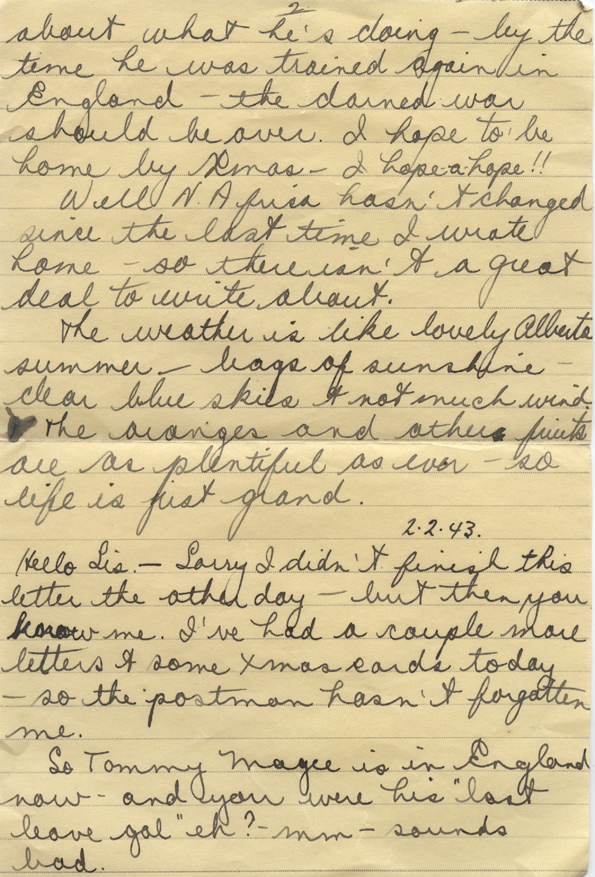 2.
about what he's doing - by the
time he was trained again in
England - the darned war
should be over. I hope to be
home by Xmas - I hope-a-hope!!
Well N. Africa hasn't changed
since the last time I wrote
home - so there isn't a great
deal to write about.
The weather is like lovely Alberta
summer - bags of sunshine -
clear blue skies & not much wind.
The oranges and other fruits
are as plentiful as ever - so
life is just grand.
2.2.43.
Hello Lis. - Sorry I didn't finish this
letter the other day - but then you
know me. I've had a couple more
letters & some Xmas cards today
- so the postman hasn't forgotten
me.
So Tommy Magee is in England
now - and you were his "last
leave gal" eh? - mm - sounds
bad.